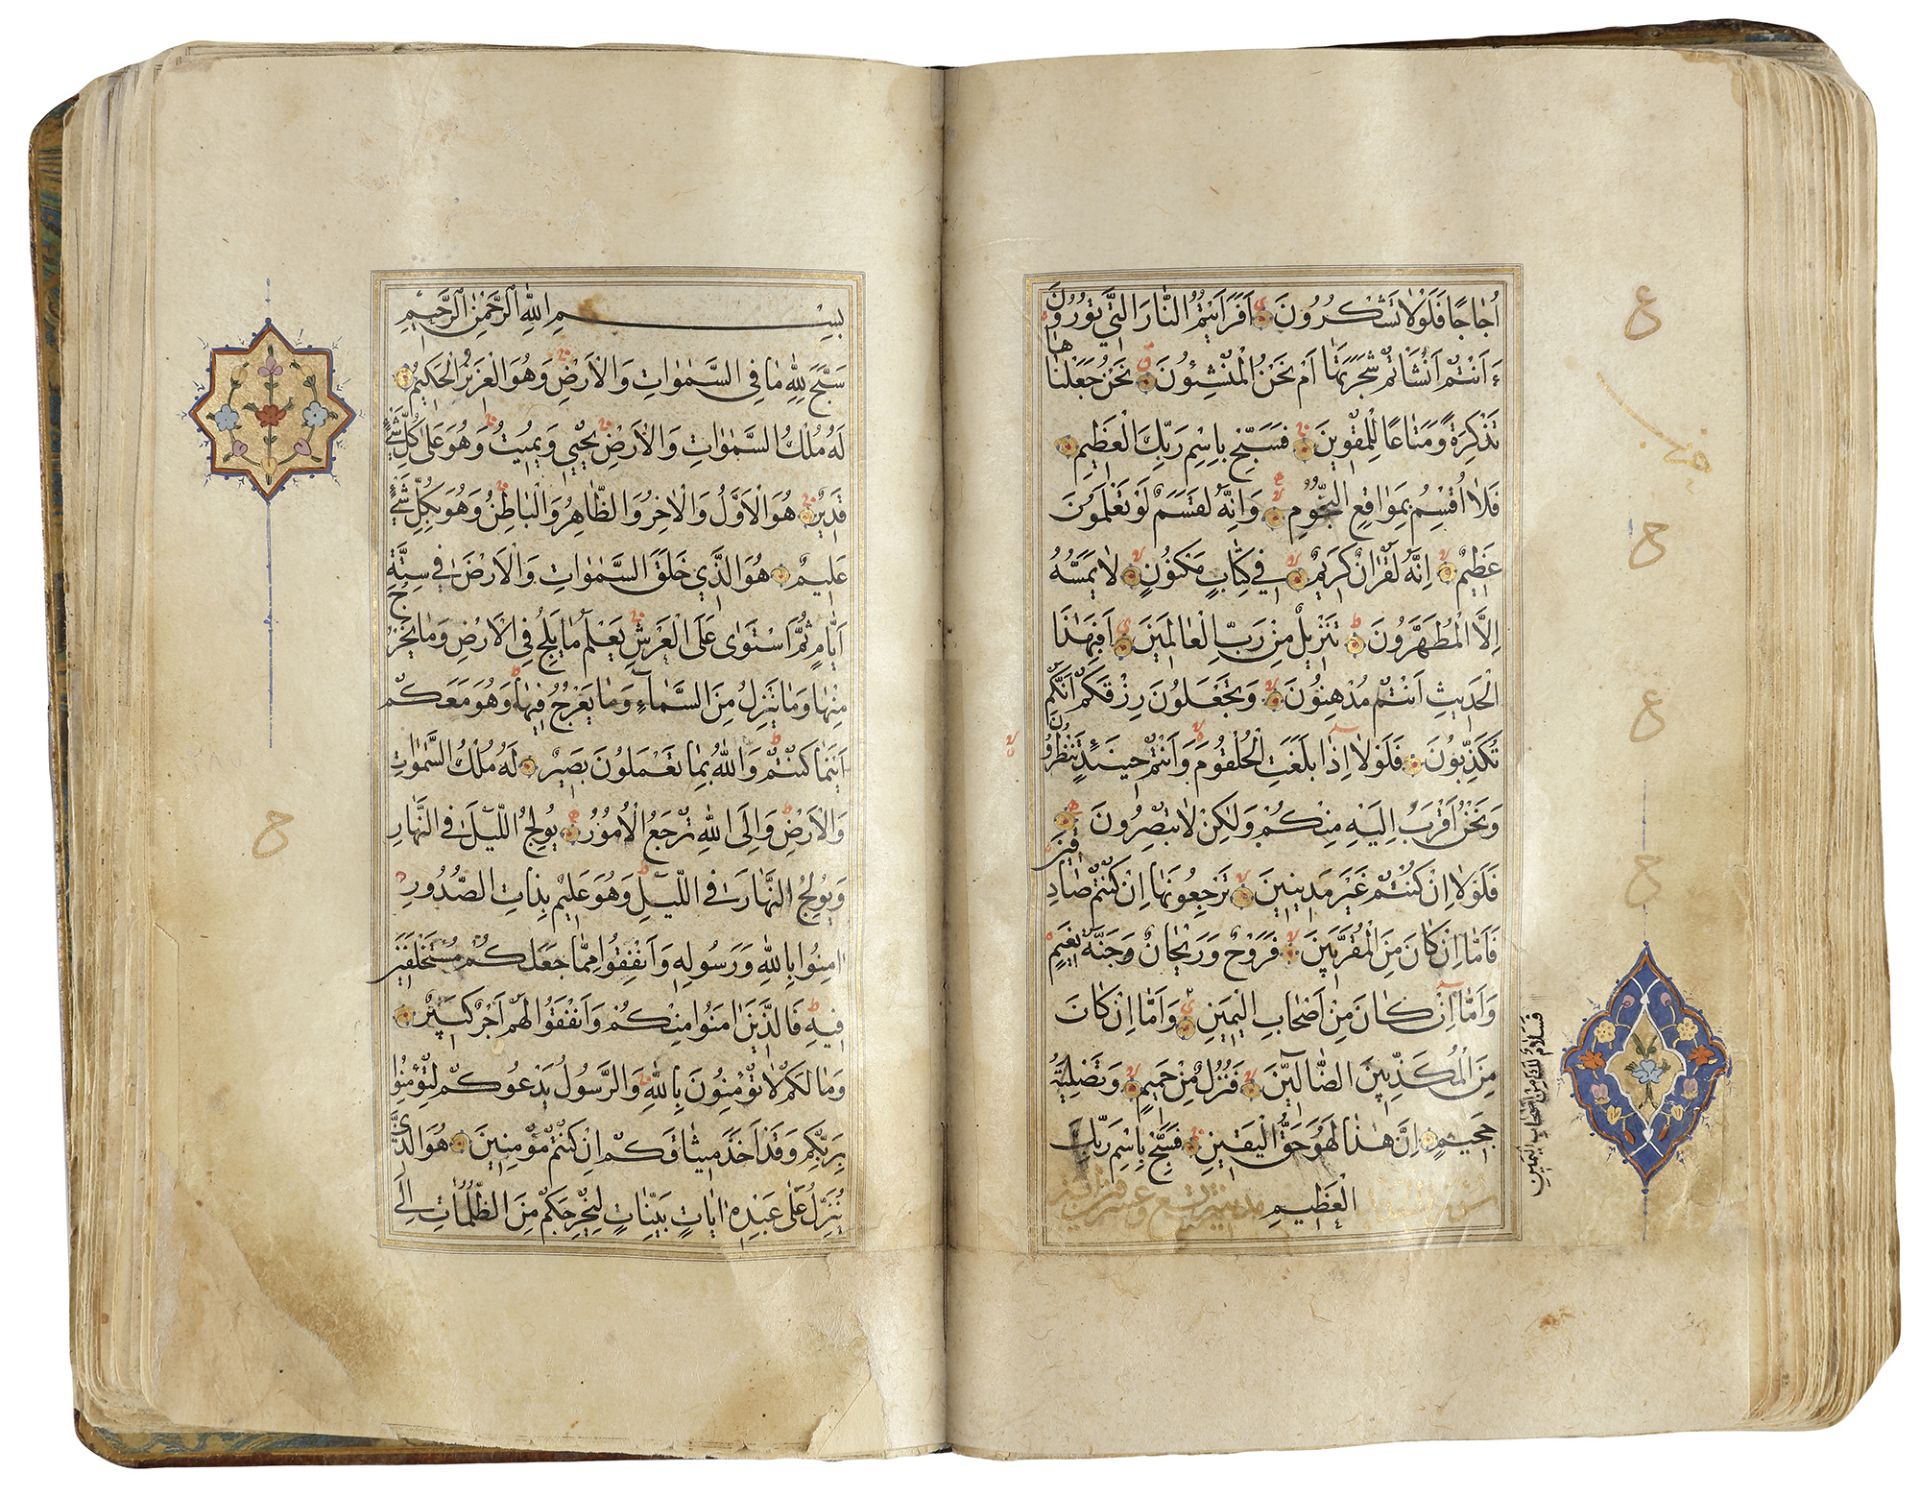 اُجَاجًا فَلَوْلَا تَشْكُرُونَ اَفَرَاَيْتُمُ النَّارَ الَّتِي تُورُونَ
ءَاَنْتُمْ اَنْشَاْتُمْ شَجَرَتَهَا اَمْ نَحْنُ الْمُنْشِئُونَ نَحْنُ جَعَلْنَاهَا
تَذْكِرَةً وَمَتَاعًا لِلْمُقْوِينَ فَسَبِّحْ بِاسْمِ رَبِّكَ الْعَظِيمِ
فَلَا اُقْسِمُ بِمَوَاقِعِ النُّجُومِ وَاِنَّهُ لَقَسَمٌ لَوْ تَعْلَمُونَ
عَظِيمٌ اِنَّهُ لَقُرْاٰنٌ كَرِيمٌ فِي كِتَابٍ مَكْنُونٍ لَا يَمَسُّهُ
اِلَّا الْمُطَهَّرُونَ تَنْزِيلٌ مِنْ رَبِّ الْعَالَمِينَ اَفَبِهٰذَا
الْحَدِيثِ اَنْتُمْ مُدْهِنُونَ وَتَجْعَلُونَ رِزْقَكُمْ اَنَّكُمْ
تُكَذِّبُونَ فَلَوْلَا اِذَا بَلَغَتِ الْحُلْقُومَ وَاَنْتُمْ حِينَئِذٍ تَنْظُرُونَ
وَنَحْنُ اَقْرَبُ اِلَيْهِ مِنْكُمْ وَلٰكِنْ لَا تُبْصِرُونَ
فَلَوْلَا اِنْ كُنْتُمْ غَيْرَ مَدِينِينَ تَرْجِعُونَهَا اِنْ كُنْتُمْ صَادِقِينَ
فَاَمَّا اِنْ كَانَ مِنَ الْمُقَرَّبِينَ فَرَوْحٌ وَرَيْحَانٌ وَجَنَّةُ نَعِيمٍ
وَاَمَّا اِنْ كَانَ مِنْ اَصْحَابِ الْيَمِينِ وَاَمَّا اِنْ كَانَ
مِنَ الْمُكَذِّبِينَ الضَّالِّينَ فَنُزُلٌ مِنْ حَمِيمٍ وَتَصْلِيَةُ
جَحِيمٍ اِنَّ هٰذَا لَهُوَ حَقُّ الْيَقِينِ فَسَبِّحْ بِاسْمِ رَبِّكَ
الْعَظِيمِ
فَسَلَامٌ لَكَ مِنْ اَصْحَابِ الْيَمِينِ
بِسْمِ اللّٰهِ الرَّحْمٰنِ الرَّحِيمِ
سَبَّحَ لِلّٰهِ مَا فِي السَّمٰوَاتِ وَالْاَرْضِ وَهُوَ الْعَزِيزُ الْحَكِيمُ
لَهُ مُلْكُ السَّمٰوَاتِ وَالْاَرْضِ يُحْيِي وَيُمِيتُ وَهُوَ عَلٰى كُلِّ شَيْءٍ
قَدِيرٌ هُوَ الْاَوَّلُ وَالْاٰخِرُ وَالظَّاهِرُ وَالْبَاطِنُ وَهُوَ بِكُلِّ شَيْءٍ
عَلِيمٌ هُوَ الَّذِي خَلَقَ السَّمٰوَاتِ وَالْاَرْضَ فِي سِتَّةِ
اَيَّامٍ ثُمَّ اسْتَوٰى عَلَى الْعَرْشِ يَعْلَمُ مَا يَلِجُ فِي الْاَرْضِ وَمَا يَخْرُجُ
مِنْهَا وَمَا يَنْزِلُ مِنَ السَّمَاءِ وَمَا يَعْرُجُ فِيهَا وَهُوَ مَعَكُمْ
اَيْنَمَا كُنْتُمْ وَاللّٰهُ بِمَا تَعْمَلُونَ بَصِيرٌ لَهُ مُلْكُ السَّمٰوَاتِ
وَالْاَرْضِ وَاِلَى اللّٰهِ تُرْجَعُ الْاُمُورُ يُولِجُ اللَّيْلَ فِي النَّهَارِ
وَيُولِجُ النَّهَارَ فِي اللَّيْلِ وَهُوَ عَلِيمٌ بِذَاتِ الصُّدُورِ
اٰمِنُوا بِاللّٰهِ وَرَسُولِهِ وَاَنْفِقُوا مِمَّا جَعَلَكُمْ مُسْتَخْلَفِينَ
فِيهِ فَالَّذِينَ اٰمَنُوا مِنْكُمْ وَاَنْفَقُوا لَهُمْ اَجْرٌ كَبِيرٌ
وَمَا لَكُمْ لَا تُؤْمِنُونَ بِاللّٰهِ وَالرَّسُولُ يَدْعُوكُمْ لِتُؤْمِنُوا
بِرَبِّكُمْ وَقَدْ اَخَذَ مِيثَاقَكُمْ اِنْ كُنْتُمْ مُؤْمِنِينَ هُوَ الَّذِي
يُنَزِّلُ عَلٰى عَبْدِهِ اٰيَاتٍ بَيِّنَاتٍ لِيُخْرِجَكُمْ مِنَ الظُّلُمَاتِ اِلَى